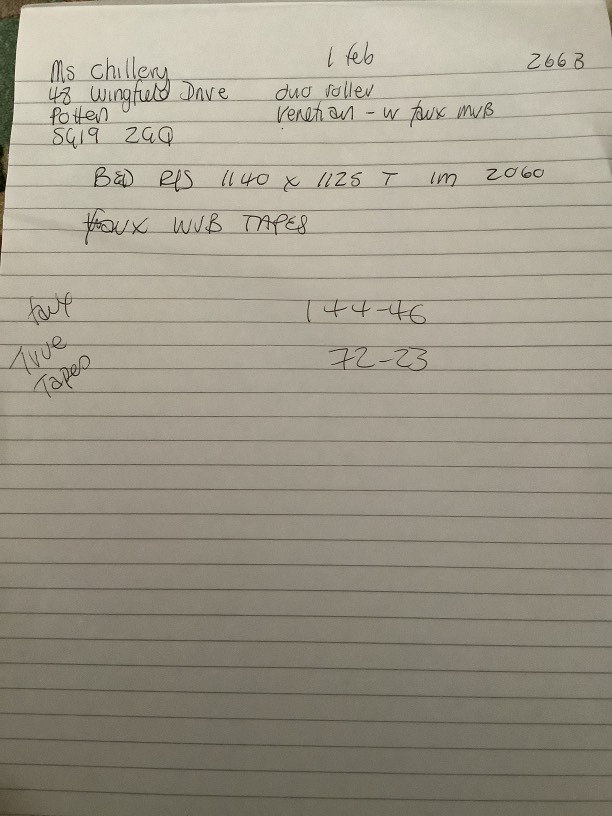 1 Feb 2663
Ms Chillery
48 Wingfield Drive duo roller
Potten venetian - w faux MVB
SG19 2GQ
BED R/S 1140 x 1125 T 1m 2060
faux WVB TAPES
faux 144-46
True 72-23
Tapes